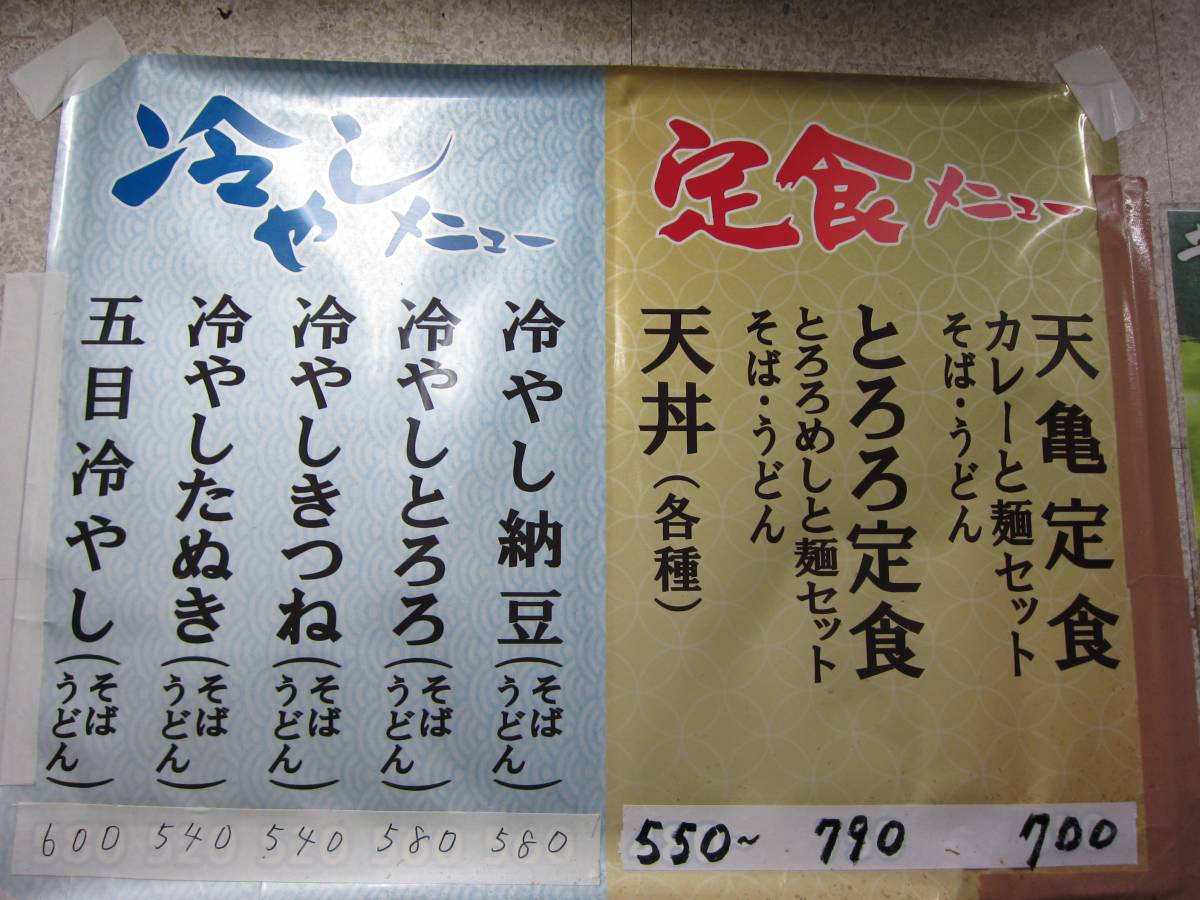 定食メニュー
天亀定食
カレーと麺セット
そば・うどん
700
とろろ定食
とろろめしと麺セット
そば・うどん
790
天丼(各種)
550~
冷やしメニュー
冷やし納豆(そば うどん)
580
冷やしとろろ(そば うどん)
580
冷やしきつね(そば うどん)
540
冷やしたぬき(そば うどん)
540
五目冷やし(そば うどん)
600